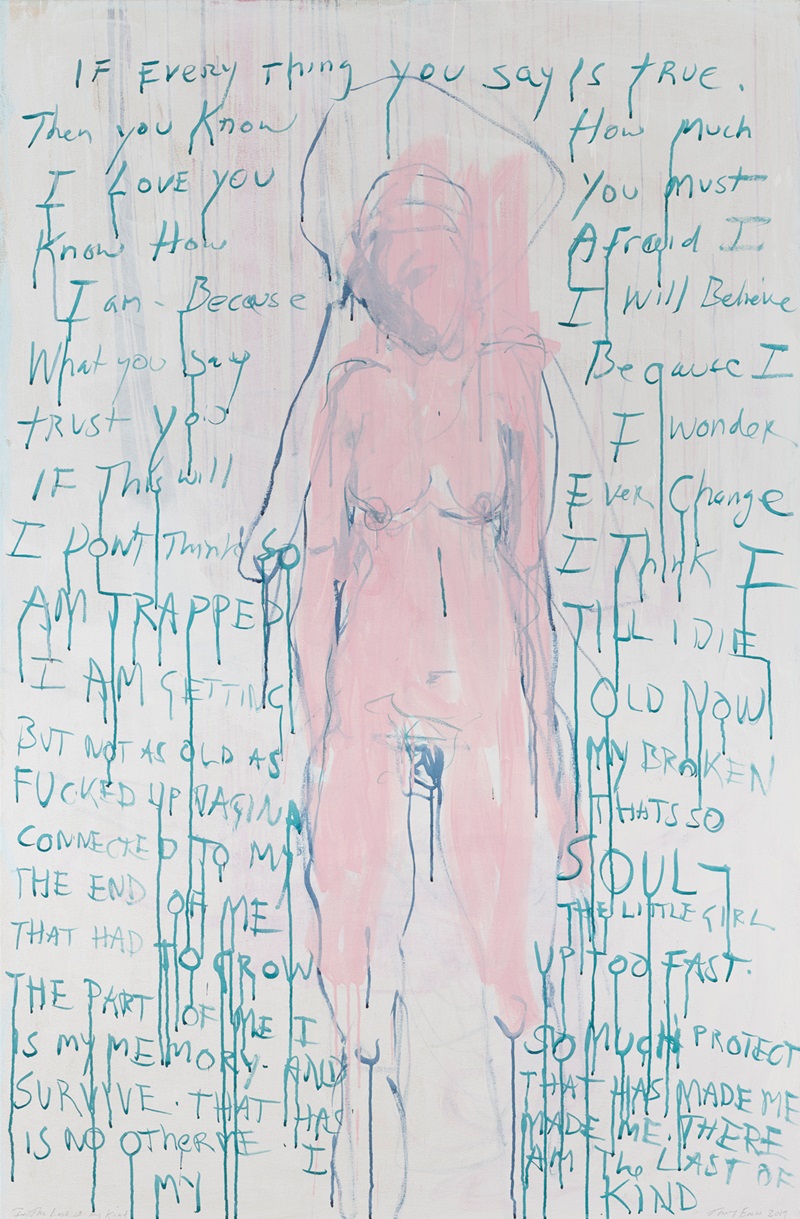 IF Every Thing you say Is tRUE.
Then you Know How much
I LOVE YOU You must
Know How Afraid I
I am - Because I Will Believe
What you say Because I
tRUST you I wonder
IF This will Ever Change
I DONT Think So I Think I
AM TRAPPED TILL I DIE
I AM GETTING OLD NOW
BUT NOT AS OLD AS MY BROKEN
FUCKED UP VAGINA THATS SO
CONNECTED TO MY SOUL -
THE END OF ME THE LITTLE GIRL
THAT HAD TO GROW UP TOO FAST.
THE PART OF ME I SO MUCH PROTECT
IS MY MEMORY. AND THAT HAS MADE ME
SURVIVE. THAT HAS MADE ME. THERE
IS NO OTHER ME. I AM The LAST OF
MY KIND
The Last of my Kind 2019